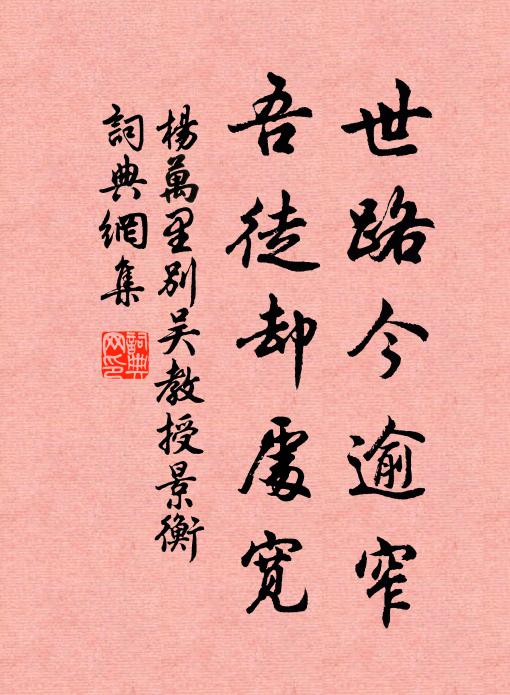 世路今逾窄
吾徒却處寬
楊萬里別吳教授景衡
詞典網集
詞典網印